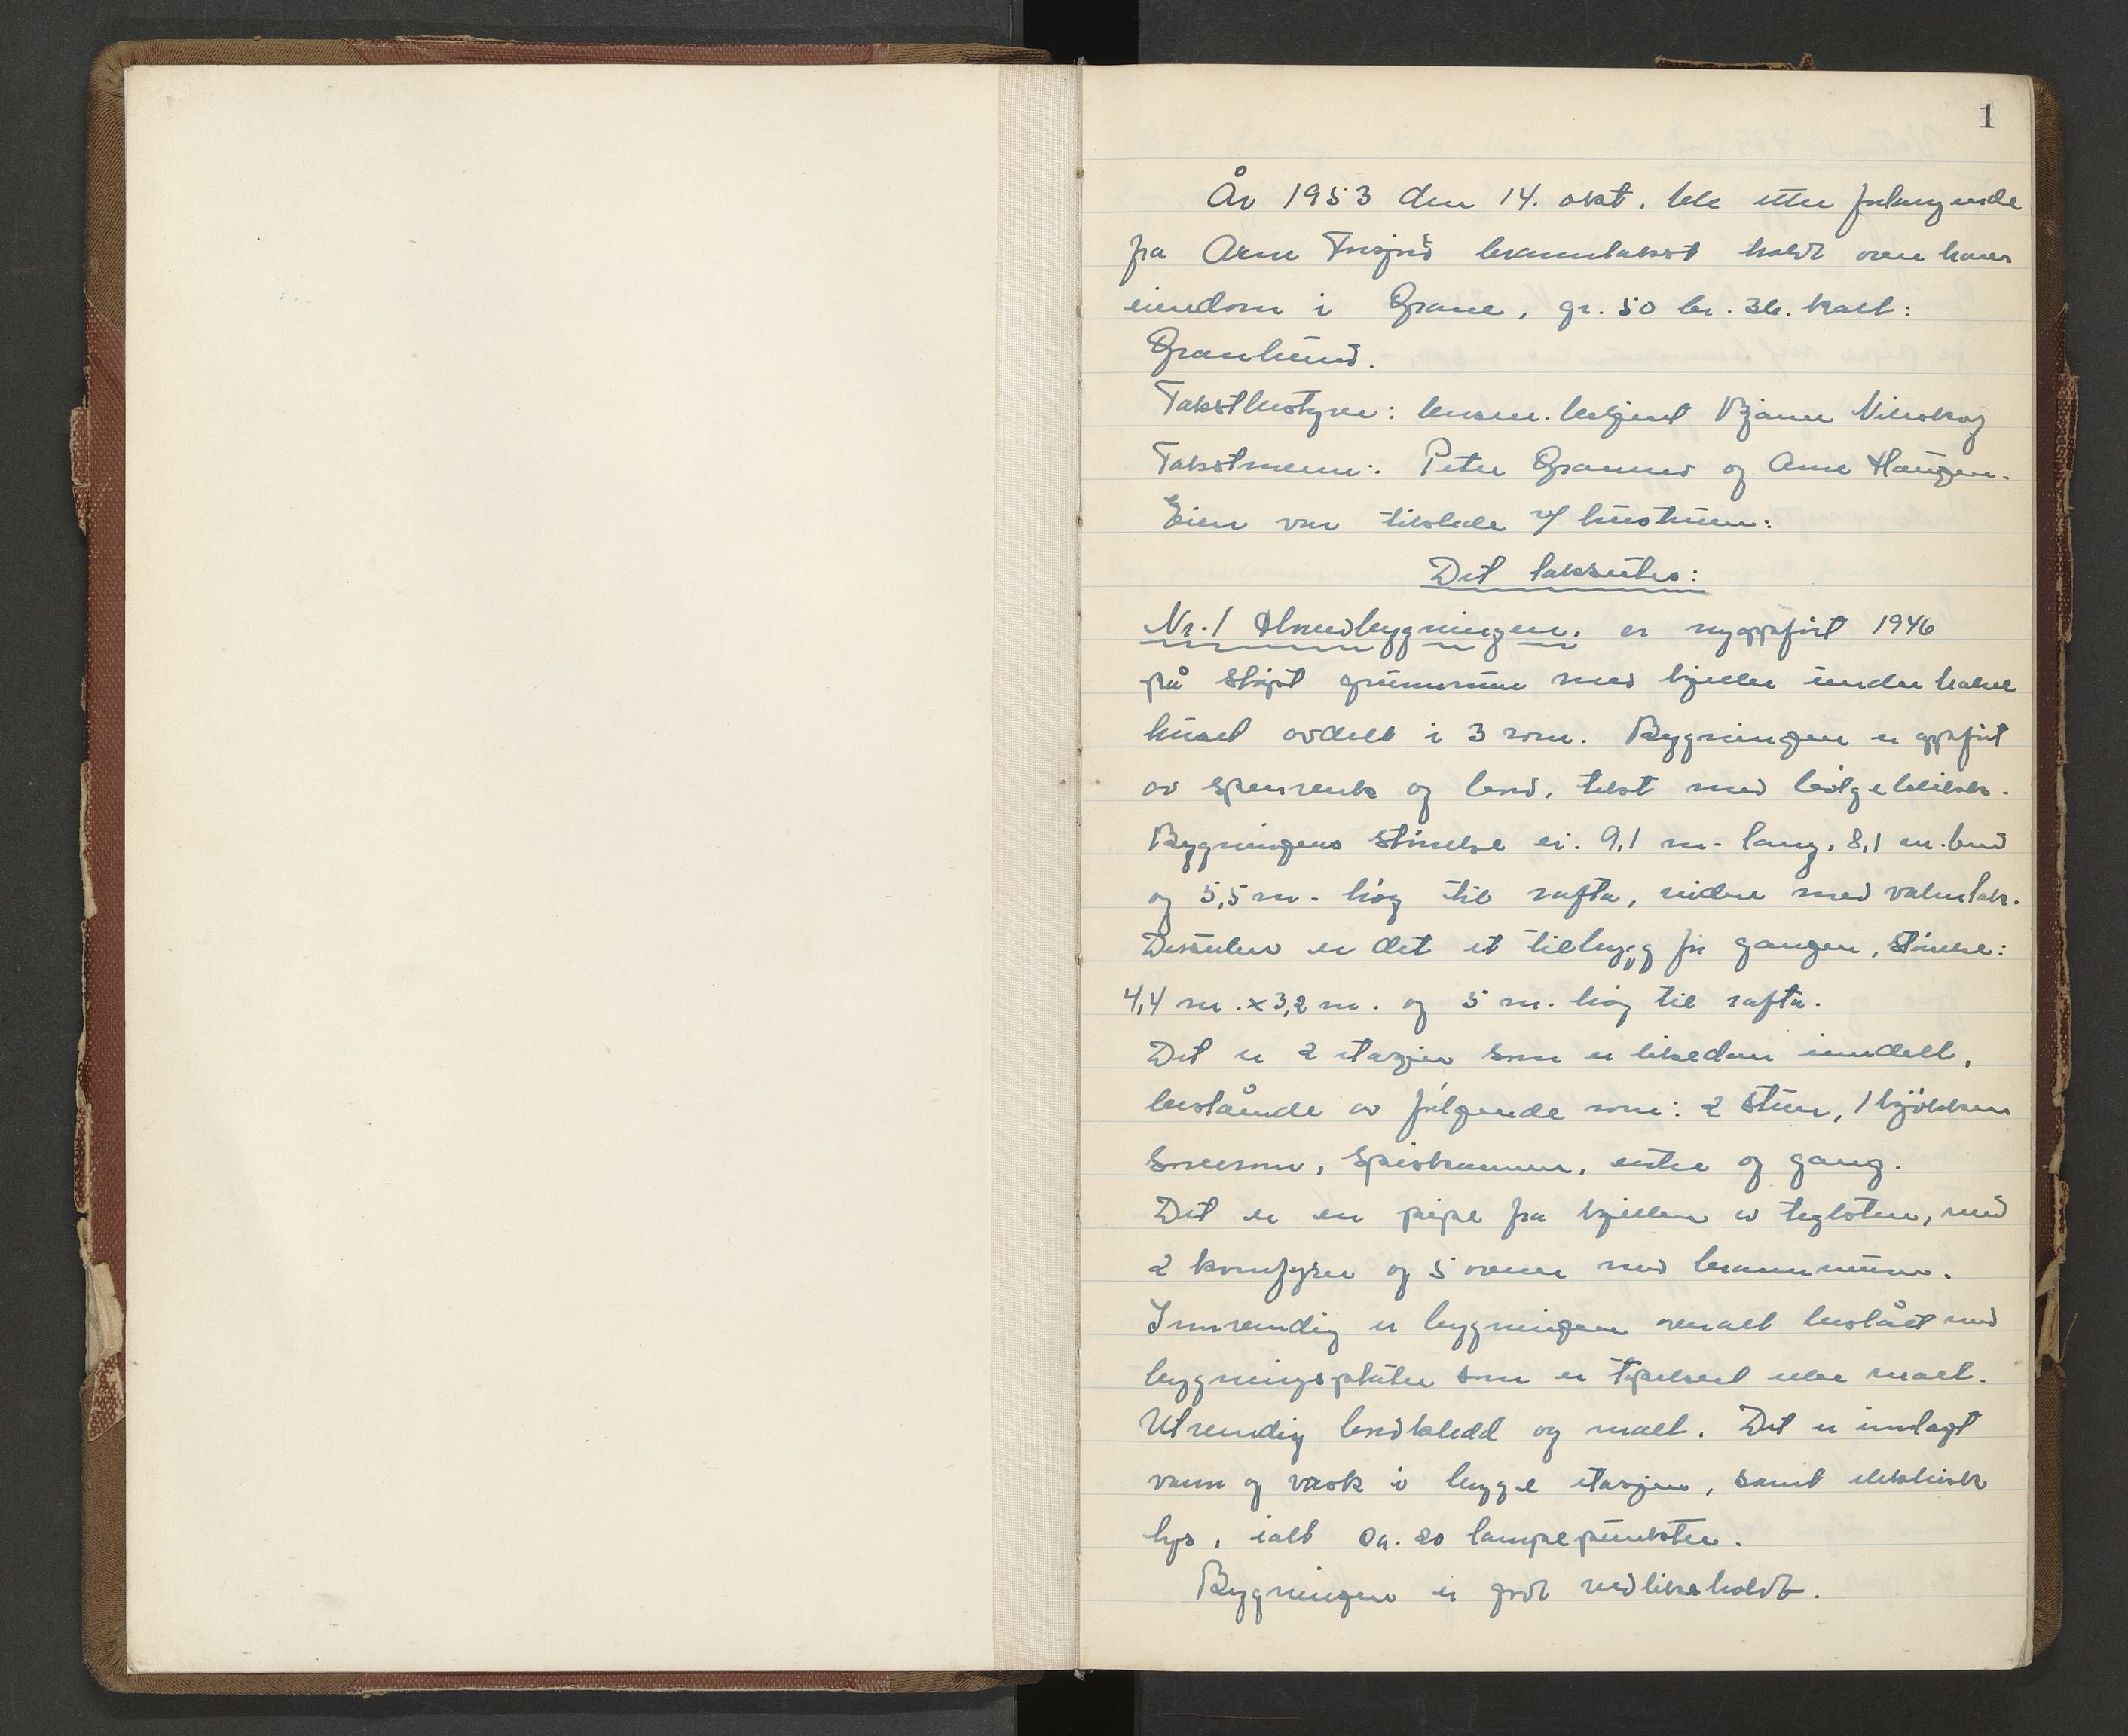 1
År 1953 den 14. okt. ble etter forlangende
fra Arne branntakst holdt over hans
eiendom i Grane, gr. 50 br. 36. kalt:
Granlund.
Takstbestyrer: lensm. betjent Bjarne
Takstmenn: Peter Grannes og Arne Haugen.
Eier var tilstede v/ hustruen:
Det taksertes:
Nr. 1 Hovedbygningen. er nyoppført 1946
på støpt grunnmur med kjeller under halve
huset avdelt i 3 rom. Bygningen er oppført
av og bord, tekt med bølgeblikk.
Bygningens størrelse er: 9,1 m. lang, 8,1 m. bred
og 5,5 m. høy til rafta, videre med valmtak.
Dessuten er det et tilbygg for gangen, større:
4,4 m. x 3,2 m. og 5 m. høy til rafta.
Det er 2 etasjer som er likedan inndelt,
bestående av følgende rom: 2 stuer, 1 kjøkken
soverom, spiskammer, entre og gang.
Det er en pipe fra kjelleren av teglsten, med
2 komfyrer og 5 ovner med brannmurer.
Innvendig er bygningen overalt beslått med
bygningsplater som er tapetsert eller malt.
Utvendig bordkledd og malt. Det er innlagt
vann og vask i begge etasjene, samt elektrisk
lys, ialt ca. 20 lampepunkter.
Bygningen er godt vedlikeholdt.